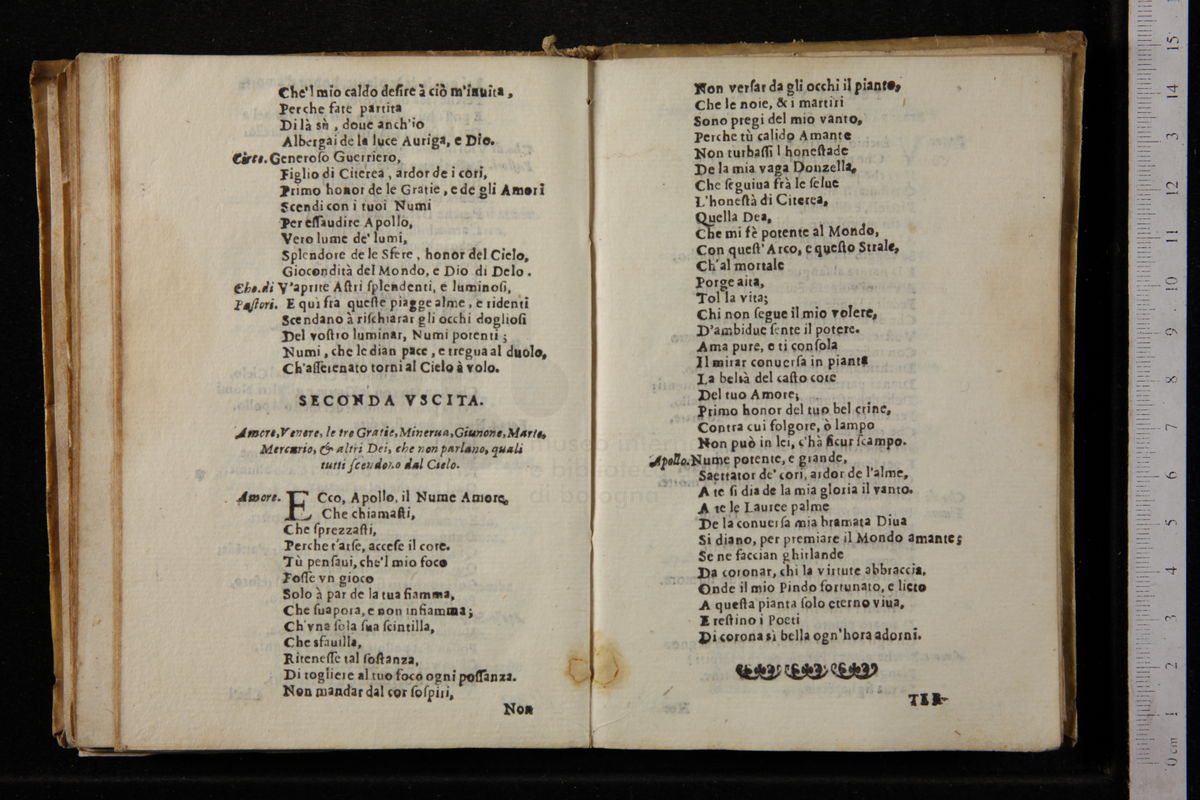 Che'l mio caldo desire à ciò m'inuita,
Perche fate partita
Di là sù, doue anch'io
Albergai de la luce Auriga, e Dio.
Circe. Generoso Guerriero,
Figlio di Citerea, ardor de i cori,
Primo honor de le Gratie, e de gli Amori
Scendi con i tuoi Numi
Per essaudire Apollo,
Vero lume de' lumi,
Splendore de le Sfere, honor del Cielo,
Giocondità del Mondo, e Dio di Delo.
Cho. di V'aprite Astri splendenti, e luminosi,
Pastori. E quì frà queste piagge alme, e ridenti
Scendano à rischiarar gli occhi dogliosi
Del vostro luminar, Numi potenti;
Numi, che le dian pace, e tregua al duolo,
Ch'asserenato torni al Cielo à volo.
SECONDA VSCITA.
Amore, Venere, le tre Gratie, Minerua, Giunone, Marte,
Mercurio, & altri Dei, che non parlano, quali
tutti scendono dal Cielo.
Amore. ECco, Apollo, il Nume Amore,
Che chiamasti,
Che sprezzasti,
Perche t'arse, accese il core.
Tù pensaui, che'l mio foco
Fosse vn gioco
Solo à par de la tua fiamma,
Che suapora, e non infiamma;
Ch'vna sola sua scintilla,
Che sfauilla,
Ritenesse tal sostanza,
Di togliere al tuo foco ogni possanza.
Non mandar dal cor sospiri,
Non
Non versar da gli occhi il pianto,
Che le noie, & i martiri
Sono pregi del mio vanto,
Perche tù calido Amante
Non turbassi l honestade
De la mia vaga Donzella,
Che seguiua frà le selue
L'honestà di Citerea,
Quella Dea,
Che mi fè potente al Mondo,
Con quest' Arco, e questo Strale,
Ch'al mortale
Porge aita,
Tol la vita;
Chi non segue il mio volere,
D'ambidue sente il potere.
Ama pure, e ti consola
Il mirar conuersa in pianta
La beltà del casto core
Del tuo Amore;
Primo honor del tuo bel crine,
Contra cui folgore, ò lampo
Non può in lei, c'hà sicur scampo.
Apollo. Nume potente, e grande,
Saettator de' cori, ardor de l'alme,
A te si dia de la mia gloria il vanto.
A te le Lauree palme
De la conuersa mia bramata Diua
Si diano, per premiare il Mondo amante;
Se ne faccian ghirlande
Da coronar, chi la virtute abbraccia,
Onde il mio Pindo fortunato, e lieto
A questa pianta solo eterno viua,
E restino i Poeti
Di corona sì bella ogn'hora adorni.
TER-
museo internazionale
e biblioteca
di bologna
0 cm 1 2 3 4 5 6 7 8 9 10 11 12 13 14 15